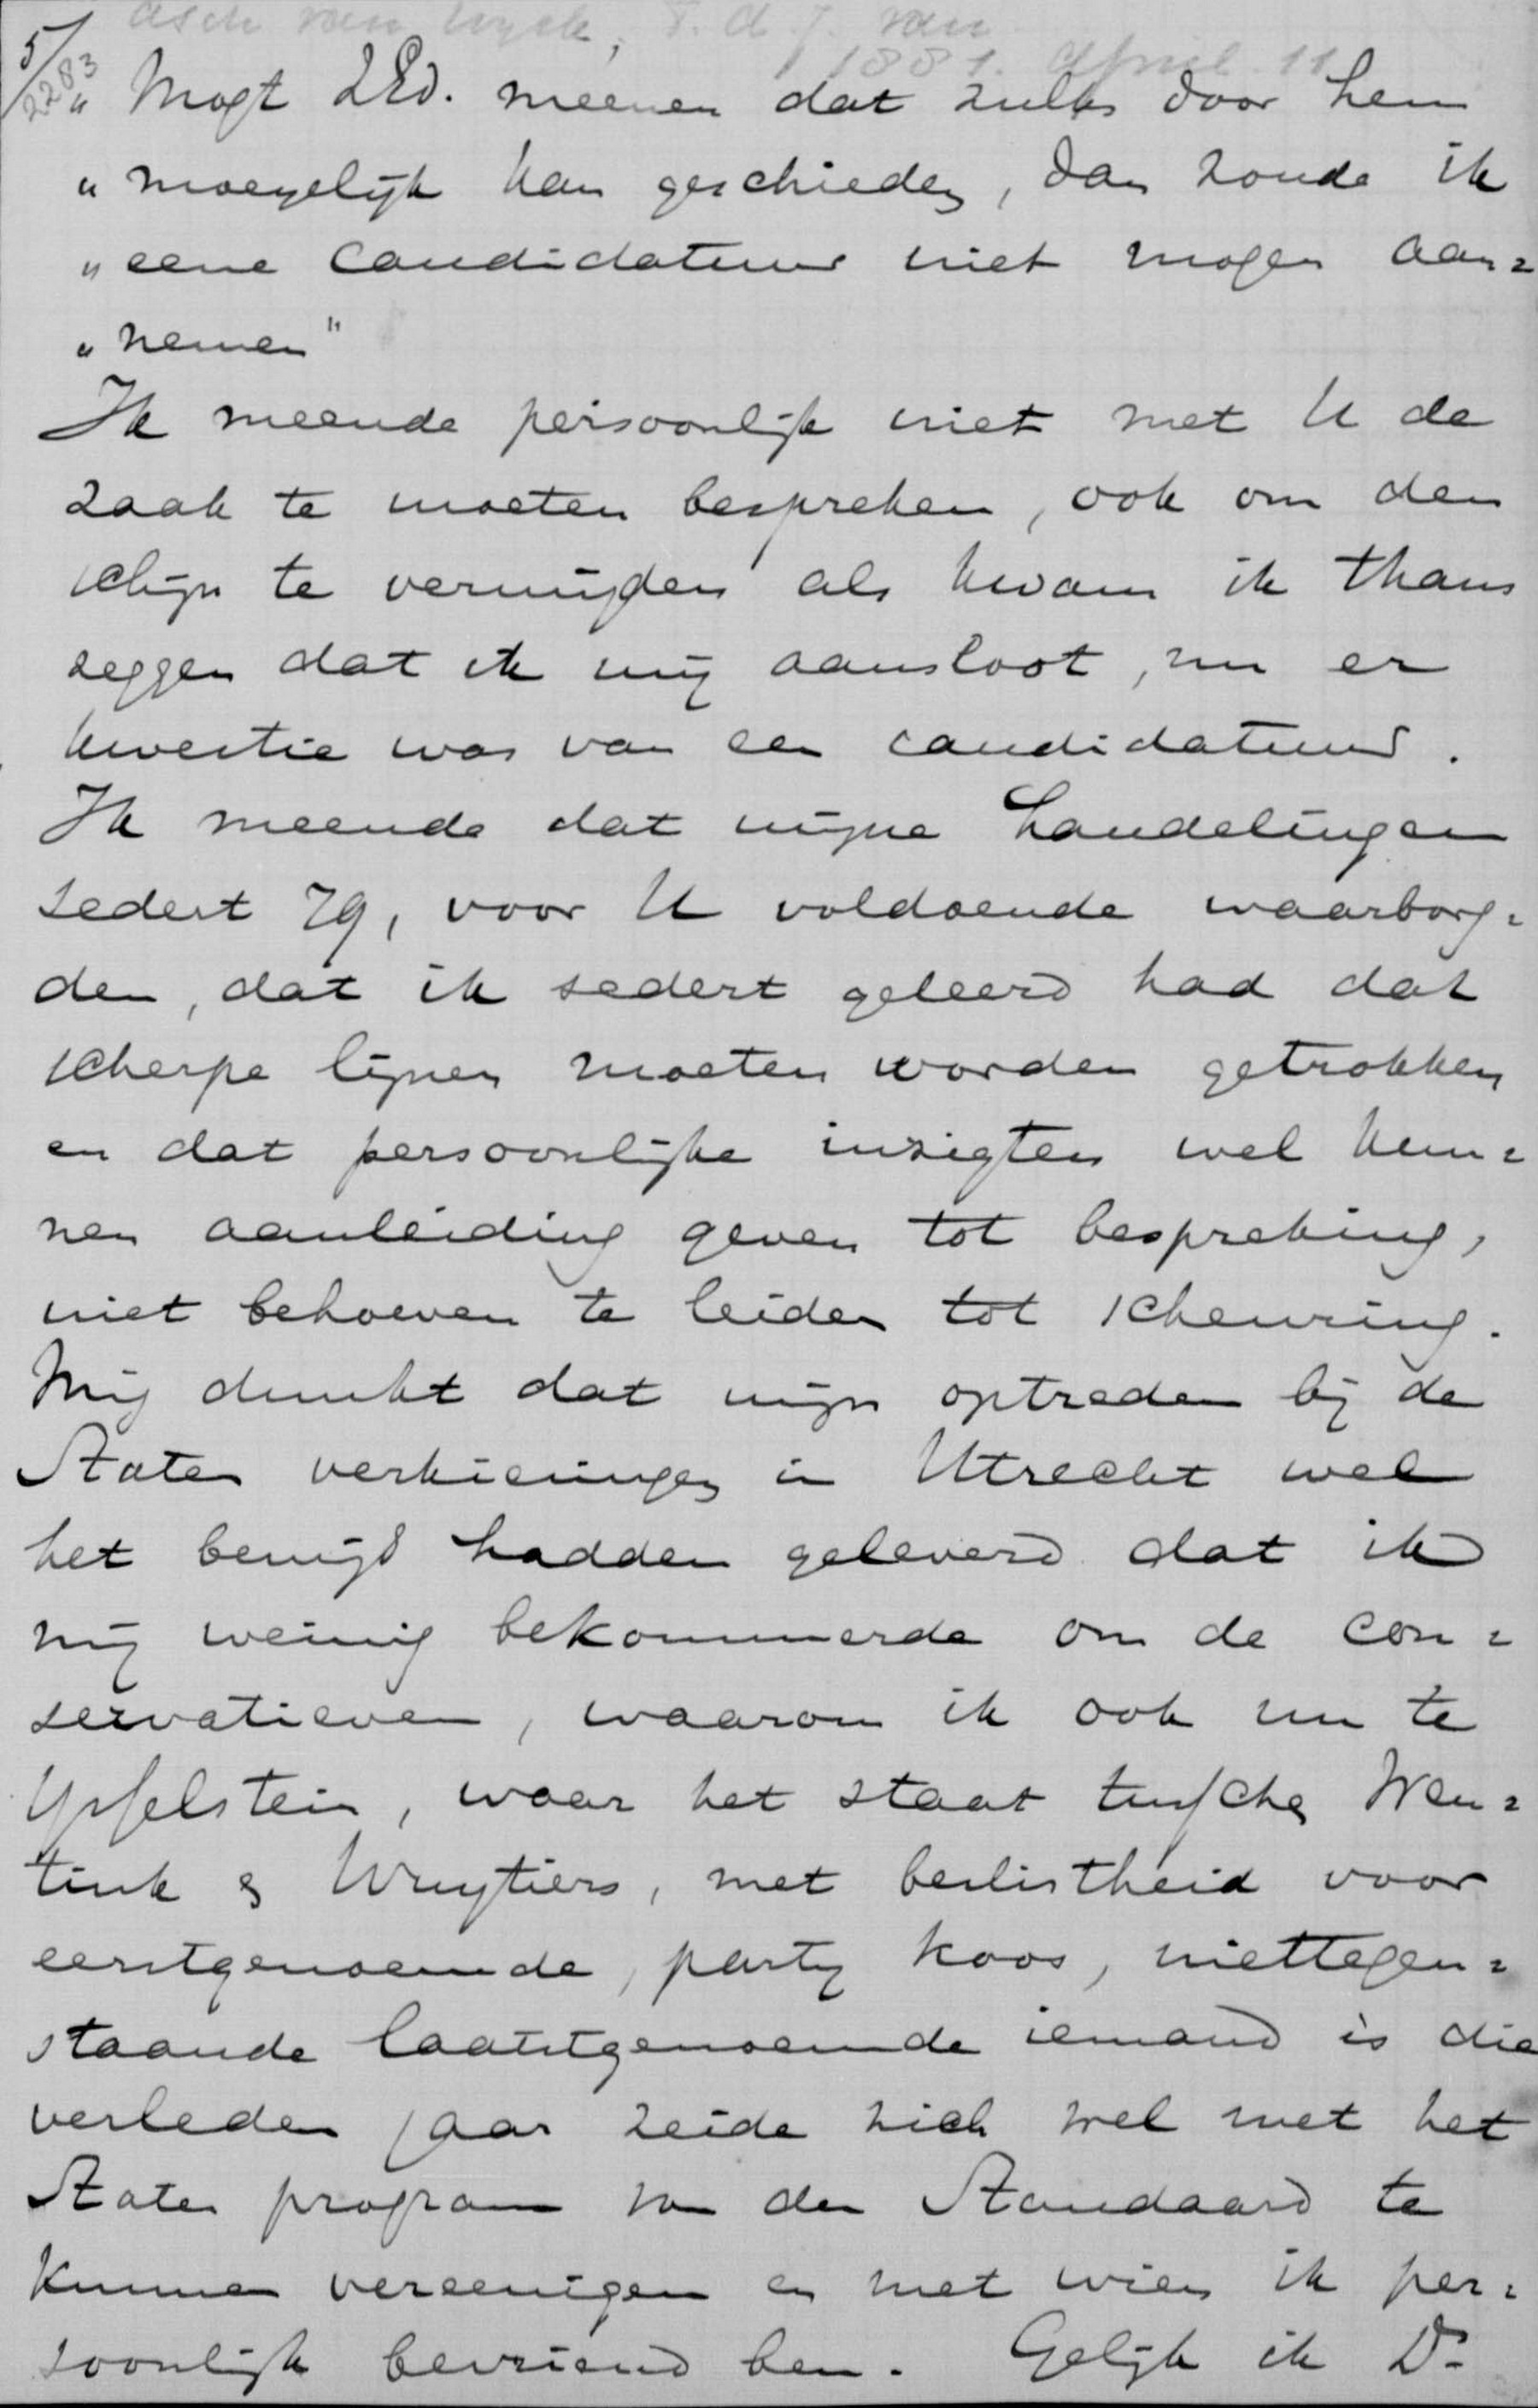 asch van wyck, T. d. J. van
1881. April 11
5/
2283
„ Mogt ZEd. meenen dat zulks door hem
„ moeyelijk kan geschieden, dan zoude ik
„ eene candidatuur niet mogen aan=
„ nemen"
Ik meende persoonlijk niet met U de
zaak te moeten bespreken, ook om den
schijn te vermijden als kwam ik thans
zeggen dat ik mij aansloot, nu er
kwestie was van een candidatuur.
Ik meende dat mijne handelingen
sedert 79, voor U voldoende waarborg=
den, dat ik sedert geleerd had dat
scherpe lijnen moeten worden getrokken
en dat persoonlijke inzigten wel kun=
nen aanleiding geven tot bespreking,
niet behoeven te leiden tot scheuring.
Mij dunkt dat mijn optreden bij de
Staten verkiezingen in Utrecht wel
het bewijs hadden geleverd dat ik
mij weinig bekommerde om de con=
servatieven, waarom ik ook nu te
Ysselstein, waar het staat tusschen Wen=
tink & Wruytiers, met beslistheid voor
eerstgenoemde, party koos, niettegen=
staande laatstgenoemde iemand is die
verleden jaar zeide zich wel met het
Staten program van den Standaard te
kunnen vereenigen en met wien ik per=
soonlijk bevriend ben. Gelijk ik Dr.